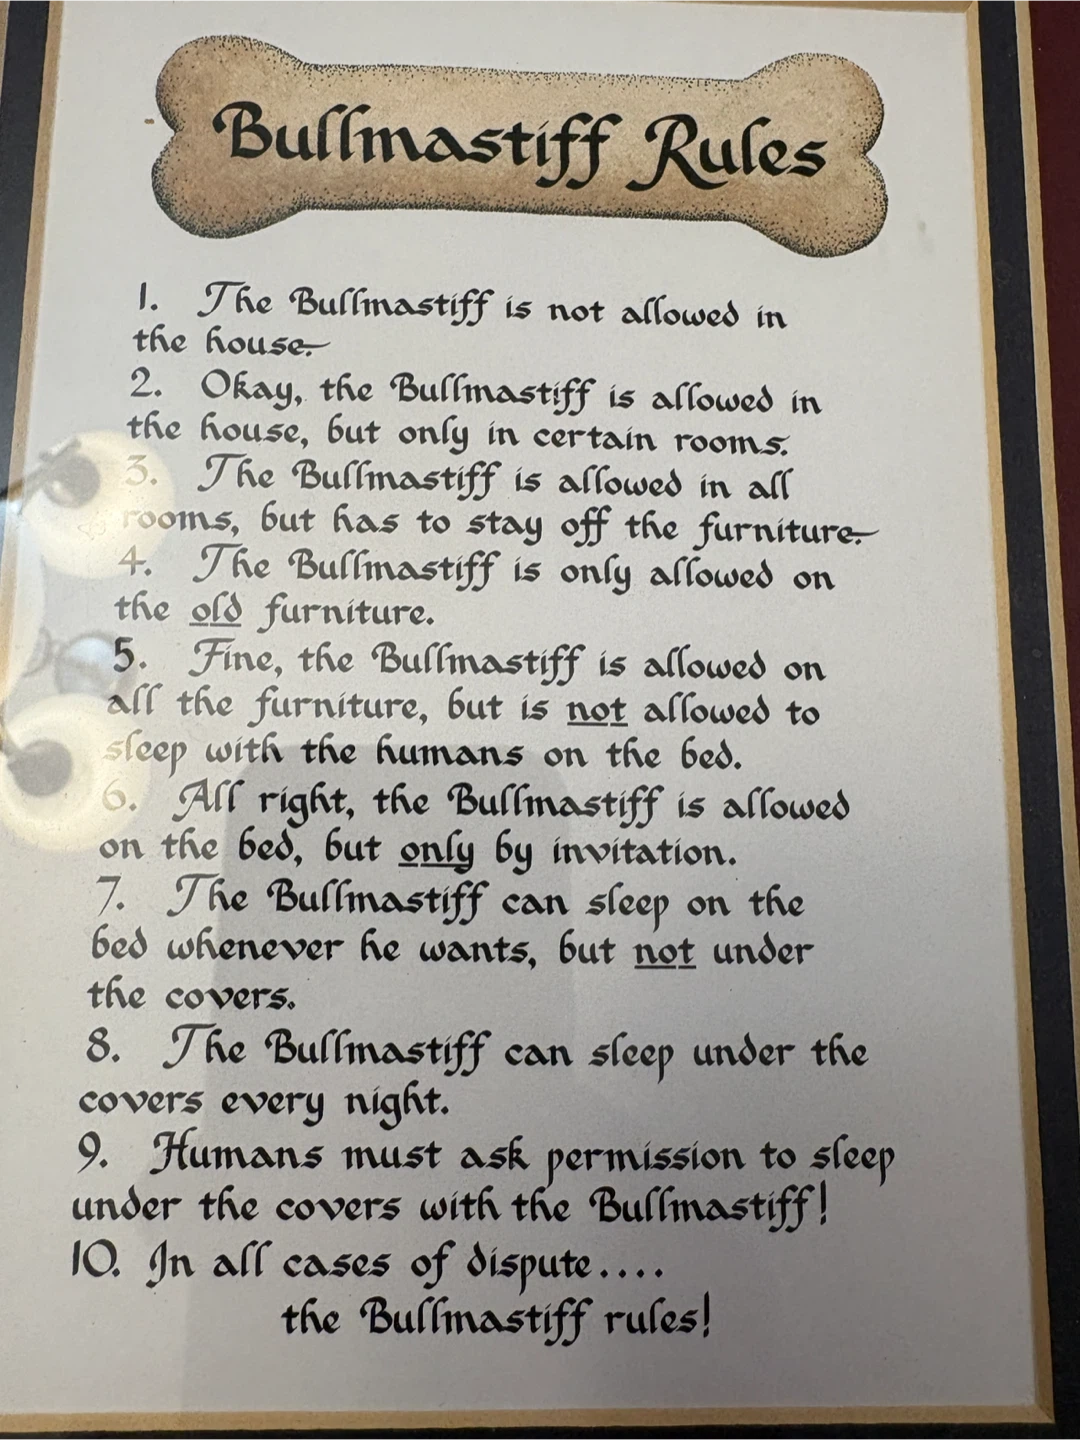 Bullmastiff Rules
1. The Bullmastiff is not allowed in
the house.
2. Okay, the Bullmastiff is allowed in
the house, but only in certain rooms.
3. The Bullmastiff is allowed in all
rooms, but has to stay off the furniture.
4. The Bullmastiff is only allowed on
the old furniture.
5. Fine, the Bullmastiff is allowed on
all the furniture, but is not allowed to
sleep with the humans on the bed.
6. All right, the Bullmastiff is allowed
on the bed, but only by invitation.
7. The Bullmastiff can sleep on the
bed whenever he wants, but not under
the covers.
8. The Bullmastiff can sleep under the
covers every night.
9. Humans must ask permission to sleep
under the covers with the Bullmastiff!
10. In all cases of dispute....
the Bullmastiff rules!